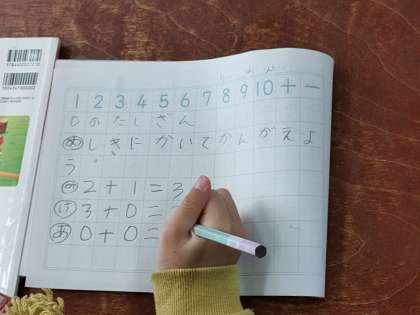 1 2 3 4 5 6 7 8 9 10 + −
0のたしざん
め しきに かいて かんがえよ
う。
2+1=3
け 3+0=
あ 0+0=